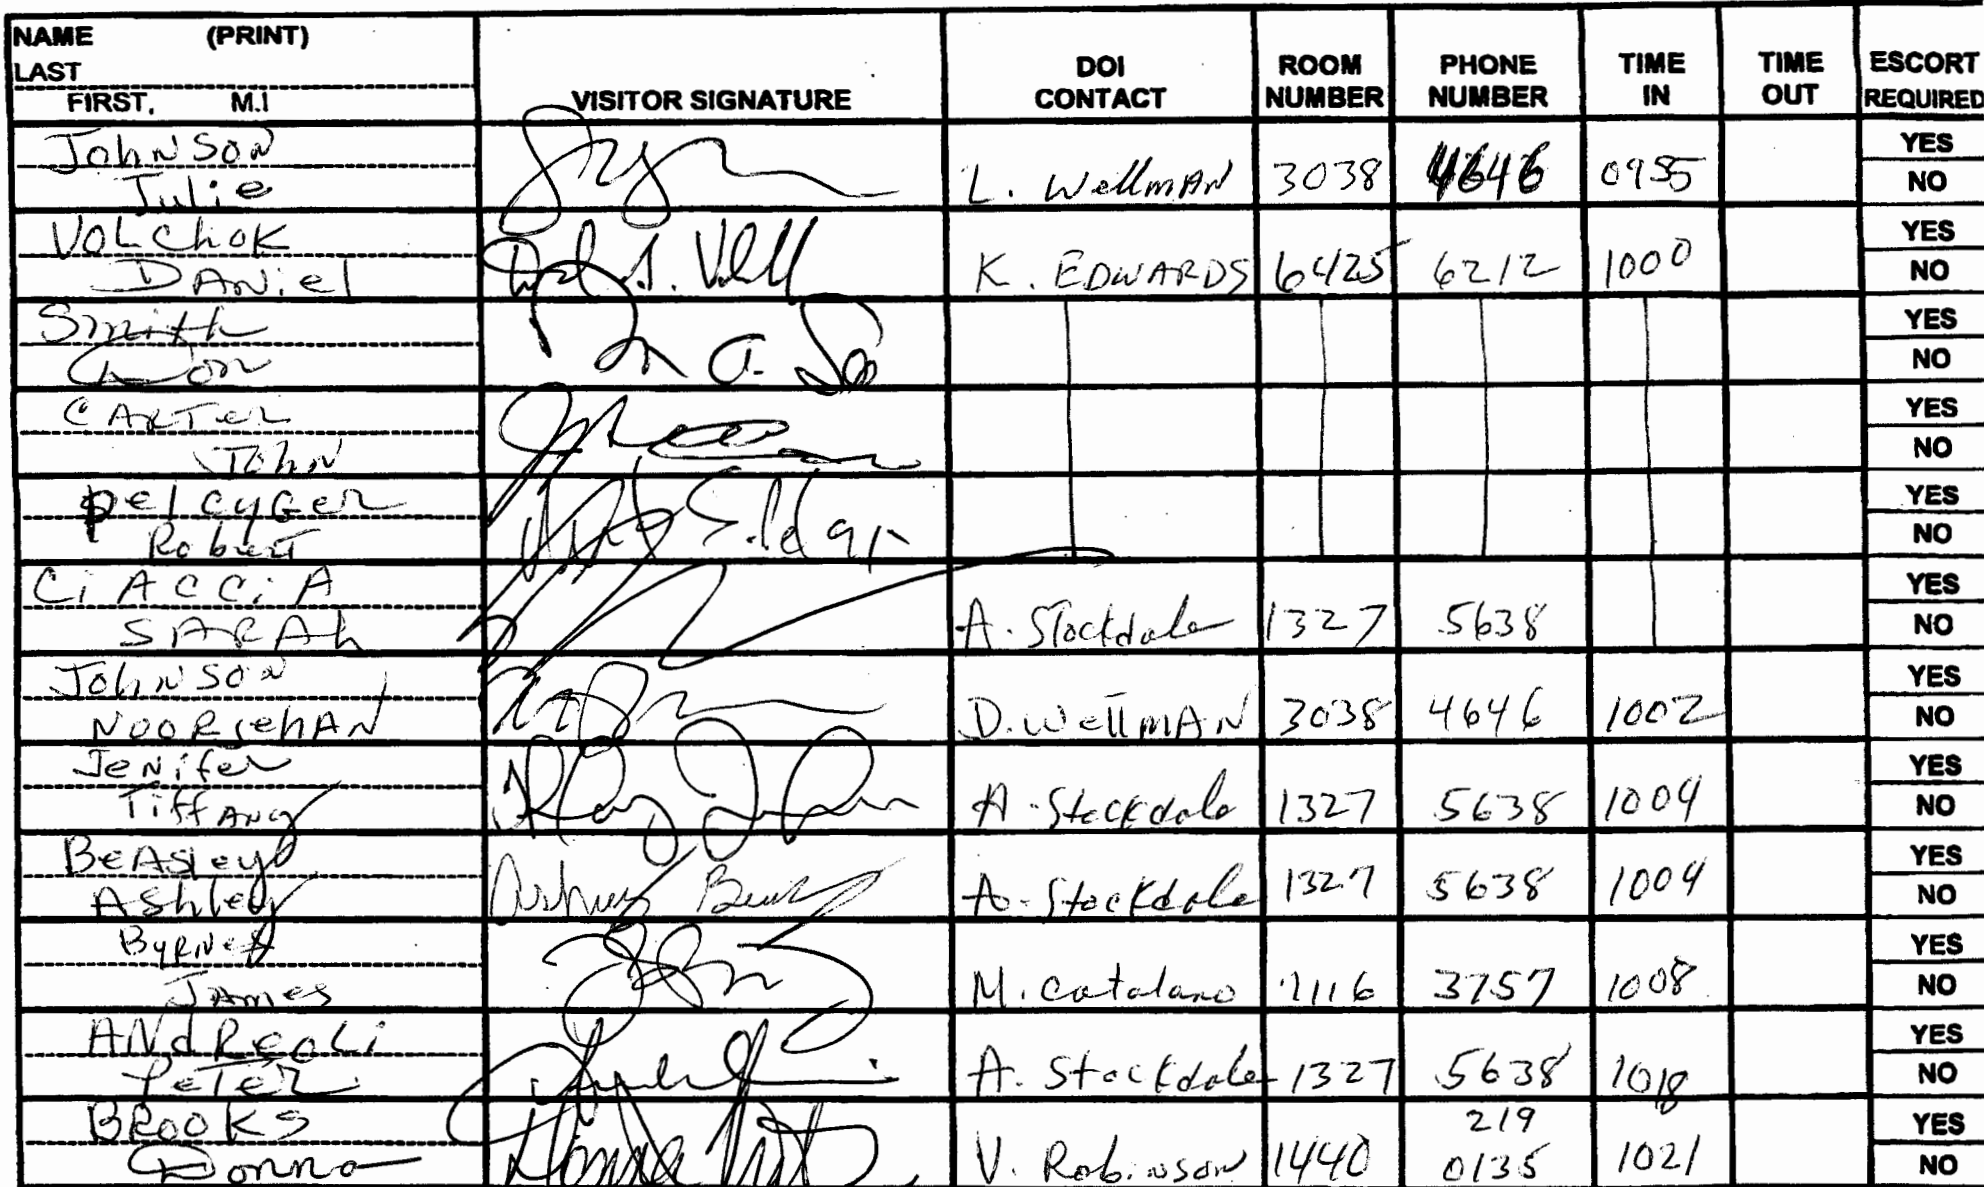 NAME (PRINT)
LAST
FIRST, M.I
VISITOR SIGNATURE
DOI CONTACT
ROOM NUMBER
PHONE NUMBER
TIME IN
TIME OUT
ESCORT REQUIRED
JohNSoN
Julie
L. WellmAN 3038 4646 0955
YES
NO
VOLChoK
DANiel
K. EDWARDS 6425 6212 1000
YES
NO
Smith
Don
YES
NO
CARTer
JohN
YES
NO
pelcyGer
Robert
YES
NO
CiACCiA
SARAh
A. Stockdale 1327 5638
YES
NO
JohNSoN
NOORjehAN
D. WellmAN 3038 4646 1002
YES
NO
JeNifer
TiffANy
A. Stockdale 1327 5638 1004
YES
NO
BeAsley
AShley
A. Stockdale 1327 5638 1004
YES
NO
James
M. Catalano 7116 3757 1008
YES
NO
ANdReoLi
PeTeR
A. Stockdale 1327 5638 1018
YES
NO
BRooKS
Donna
V. Robinson 1440 219 0135 1021
YES
NO